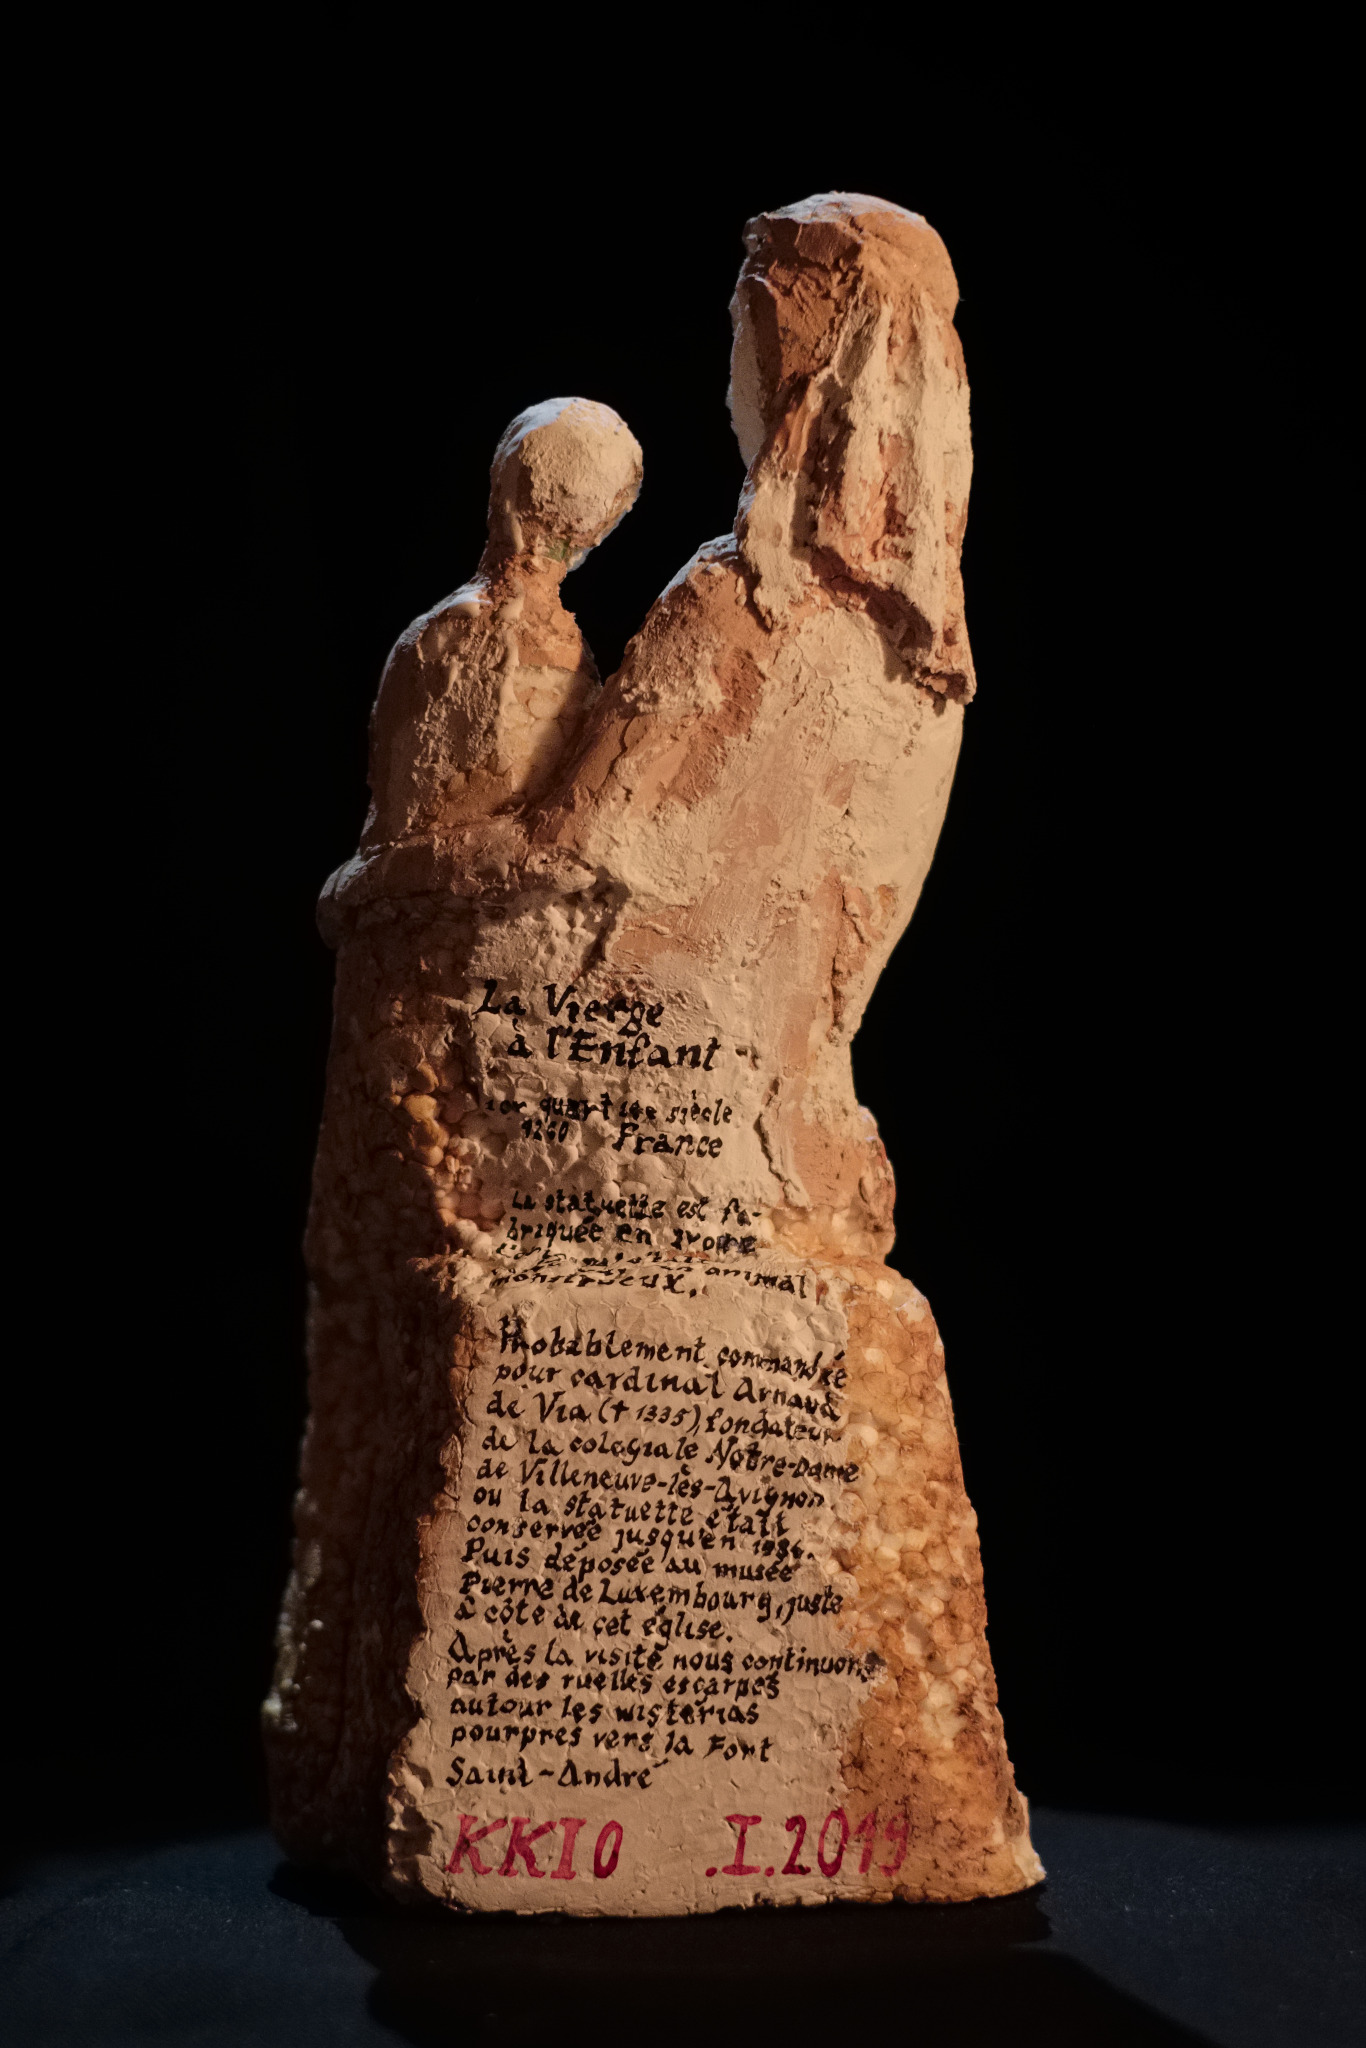 La Vierge
à l'Enfant
1er quart 14e siècle
France
La statuette est fa-
briquée en ivoire
animal
monstrueux.
Probablement commandré
pour cardinal Arnaud
de Via († 1335), fondateur
de la colegiale Notre-Dame
de Villeneuve-lès-Avignon
ou la statuette était
conservée jusqu'en 1986.
Puis déposée au musée
Pierre de Luxembourg, juste
à côte de cet église.
Après la visite nous continuons
par des ruelles escarpes
autour les wisterias
pourpres vers la Fort
Saint-André
KKIO .I.2019